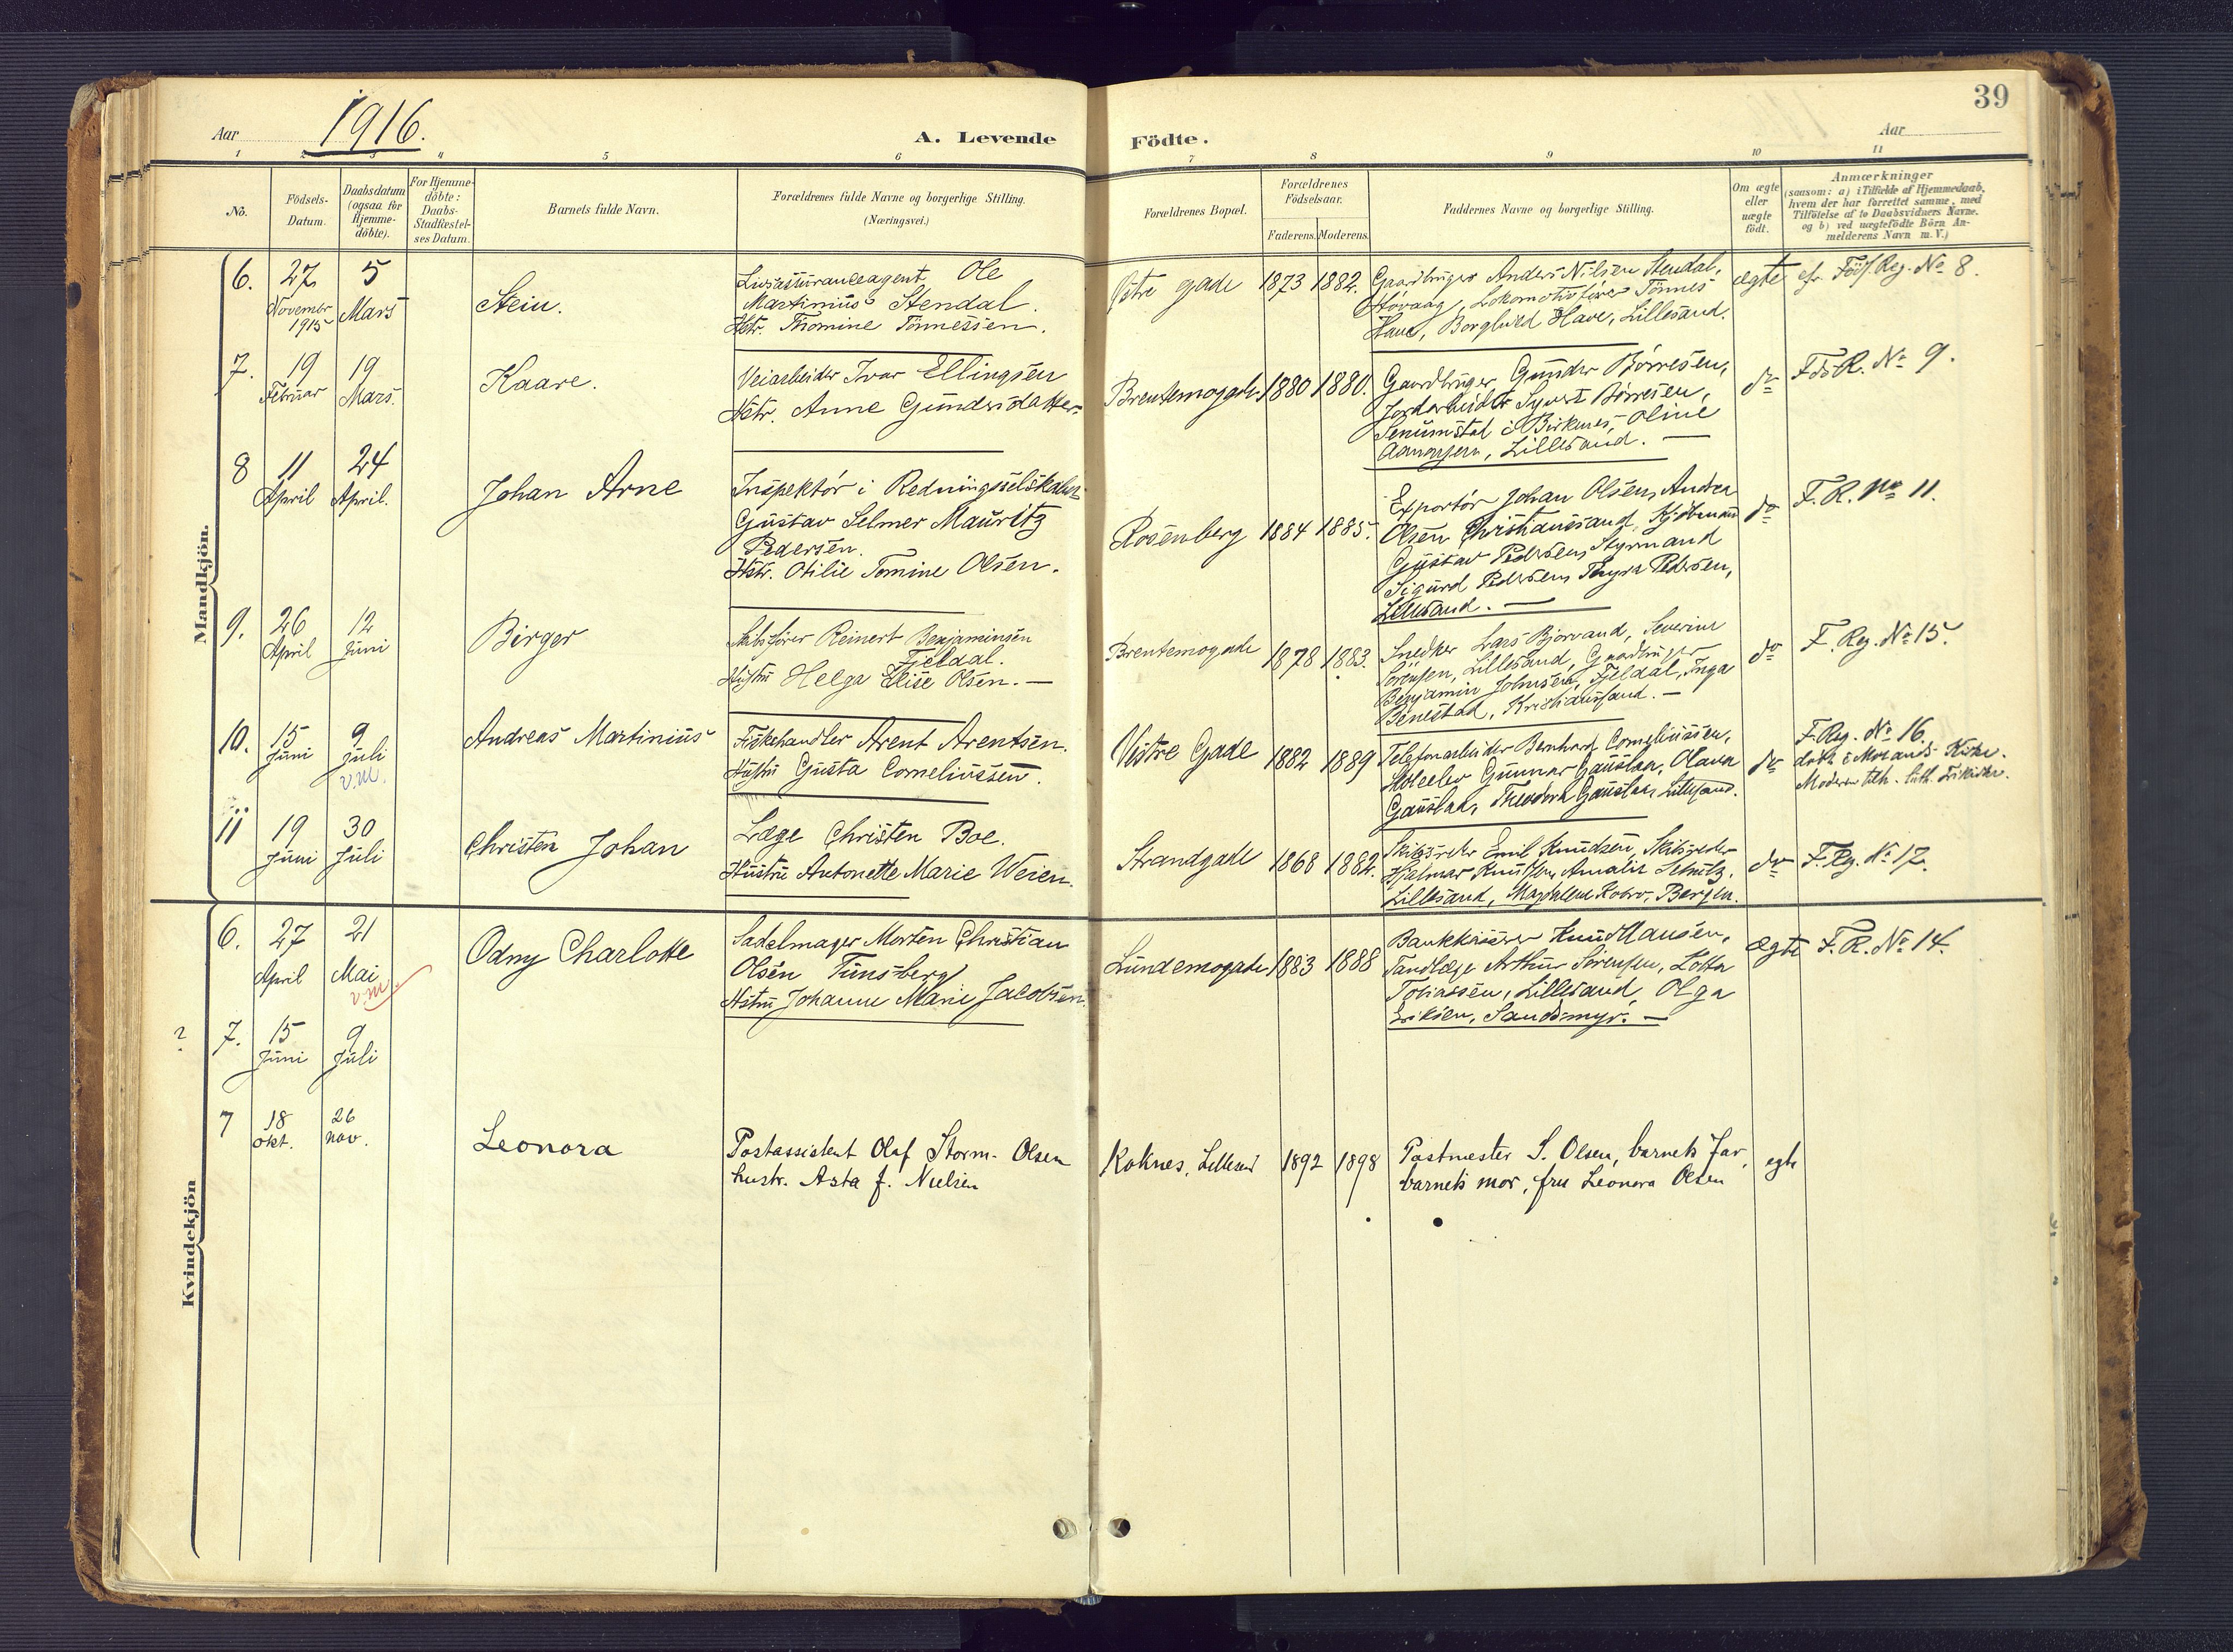 39
Aar 1916.
A. Levende
Födte.
Aar
1 2 3 4 5 6 7 8 9 10 11
No.
Födsels-
Datum.
Daabsdatum
(ogsaa for
Hjemme-
döbte).
For Hjemme-
döbte:
Daabs-
Stadfæstel-
ses Datum.
Barnets fulde Navn.
Forældrenes fulde Navne og borgerlige Stilling.
(Næringsvei.)
Forældrenes Bopæl.
Forældrenes
Födselsaar.
Faderens.
Moderens.
Faddernes Navne og borgerlige Stilling.
Om ægte
eller
uægte
födt.
Anmærkninger
(saasom: a) i Tilfælde af Hjemmedaab,
hvem der har forrettet samme, med
Tilföielse af to Daabsvidners Navne.
og b) ved uægtefödte Börn An-
melderens Navn m. V.)
Mandkjön.
6.
27
Novembr
1915
5
Mars
Stein.
Livsassuranceagent Ole
Martinius Stendal.
Hstr. Thomine Tönnessen.
Östre gade
1873
1882.
Gaardbruger Anders Nilsen Stendal,
Hövaag, Lokomotivförer Tönnes
Have, Borghild Have, Lillesand.
ægte
cfr Föds. Reg. No 8.
7.
19
Februar
19
Mars.
Kaare.
Veiarbeider Ivar Ellingsen
Hstr. Anne Gundersdatter.
Brentemogade
1880
1880.
Gaardbruger Gunder Börresen,
Jordarbeider Syvert Börresen,
Senumstad i Birkenes, Oline
Aanonsen, Lillesand. —
do
FdsR. No 9.
8
11
April
24
April.
Johan Arne
Inspektör i Redningsselskabet
Gustav Selmer Mauritz
Pedersen.
Hstr. Otilie Tomine Olsen.
Rosenberg
1884
1885.
Exportör Johan Olsen, Andrea
Olsen Christianssand, Kjöbmand
Gustav Pedersen, Styrmand
Sigurd Pedersen, Thyra Pedersen,
Lillesand. —
do
F. R. No 11.
9.
26
April
12
Juni
Birger
Skibsförer Reinert Benjaminsen
Fjeldal.
Hustru Helga Elise Olsen. —
Brentemogade
1878
1883.
Snedker Lars Bjorvand, Severine
Sörensen, Lillesand, Gaardbruger
Benjamin Johnsen, Fjeldal, Inga
Benestad, Kristianssand. —
do
F. Reg. No 15.
10.
15
Juni
9
Juli
v.m.
Andreas Martinius
Fiskehandler Arent Arentsen.
Hustru Gusta Corneliussen.
Vestre Gade
1882
1889
Telefonarbeider Bernhard Corneliussen,
Gunnar Gauslaa, Olava
Gauslaa, Theodora Gauslaa, Lillesand.
do
F. Reg. No 16.
döbt i Mosands Kirke.
Moderen tilh. luth. Frikirke.
11
19
Juni
30
Juli
Christen Johan
Læge Christen Boe.
Hustru Antonette Marie Weien.
Strandgade
1868
1882.
Skibsreder Emil Knudsen, Skibsreder
Hjalmar Knudsen, Amalie Schultz,
Lillesand, Magdalene Bergen.
do
F. Reg. No 17.
Kvindekjön
6.
27
April
21
Mai
v.m.
Odny Charlotte
Sadelmager Morten Christian
Olsen Tunsberg
Hstru Johanne Marie Jacobsen.
Lundemogade
1883
1888
Bankkasserer Knud Hansen,
Tandlæge Arthur Sörensen, Lotta
Tobiassen, Lillesand, Olga
Eriksen, Sandsmyr. —
ægte
F. R. No 14.
?
7.
15
Juni
9
Juli
7
18
okt.
26
nov.
Leonora
Postassistent Olaf Storm-Olsen
hustr. Asta f. Nielsen
Koknes, Lillesand
1892
1898
Postmester S. Olsen, barnets far,
barnets mor, fru Leonora Olsen
egte